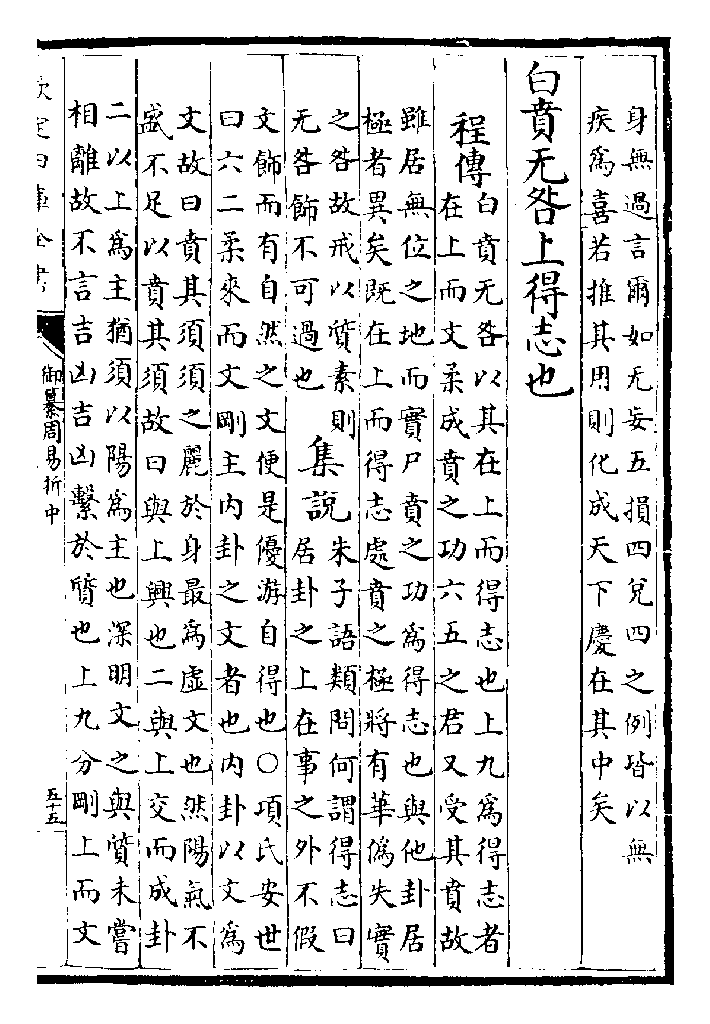 身無過言爾如无妄五損四兌四之例皆以無
疾為喜若推其用則化成天下慶在其中矣
白賁无咎上得志也
程傳
白賁无咎以其在上而得志也上九為得志者
在上而文柔成賁之功六五之君又受其賁故
雖居無位之地而實尸賁之功為得志也與他卦居
極者異矣既在上而得志處賁之極將有華偽失實
之咎故戒以質素則
无咎飾不可過也
集説
朱子語類問何謂得志曰
居卦之上在事之外不假
文飾而有自然之文便是優游自得也〇項氏安世
曰六二柔來而文剛主内卦之文者也内卦以文為
文故曰賁其須須之麗於身最為虛文也然陽氣不
盛不足以賁其須故曰與上興也二與上交而成卦
二以上為主猶須以陽為主也深明文之與質未嘗
相離故不言吉凶吉凶繫於質也上九分剛上而文
欽定四庫全書
御纂周易折中
五十五